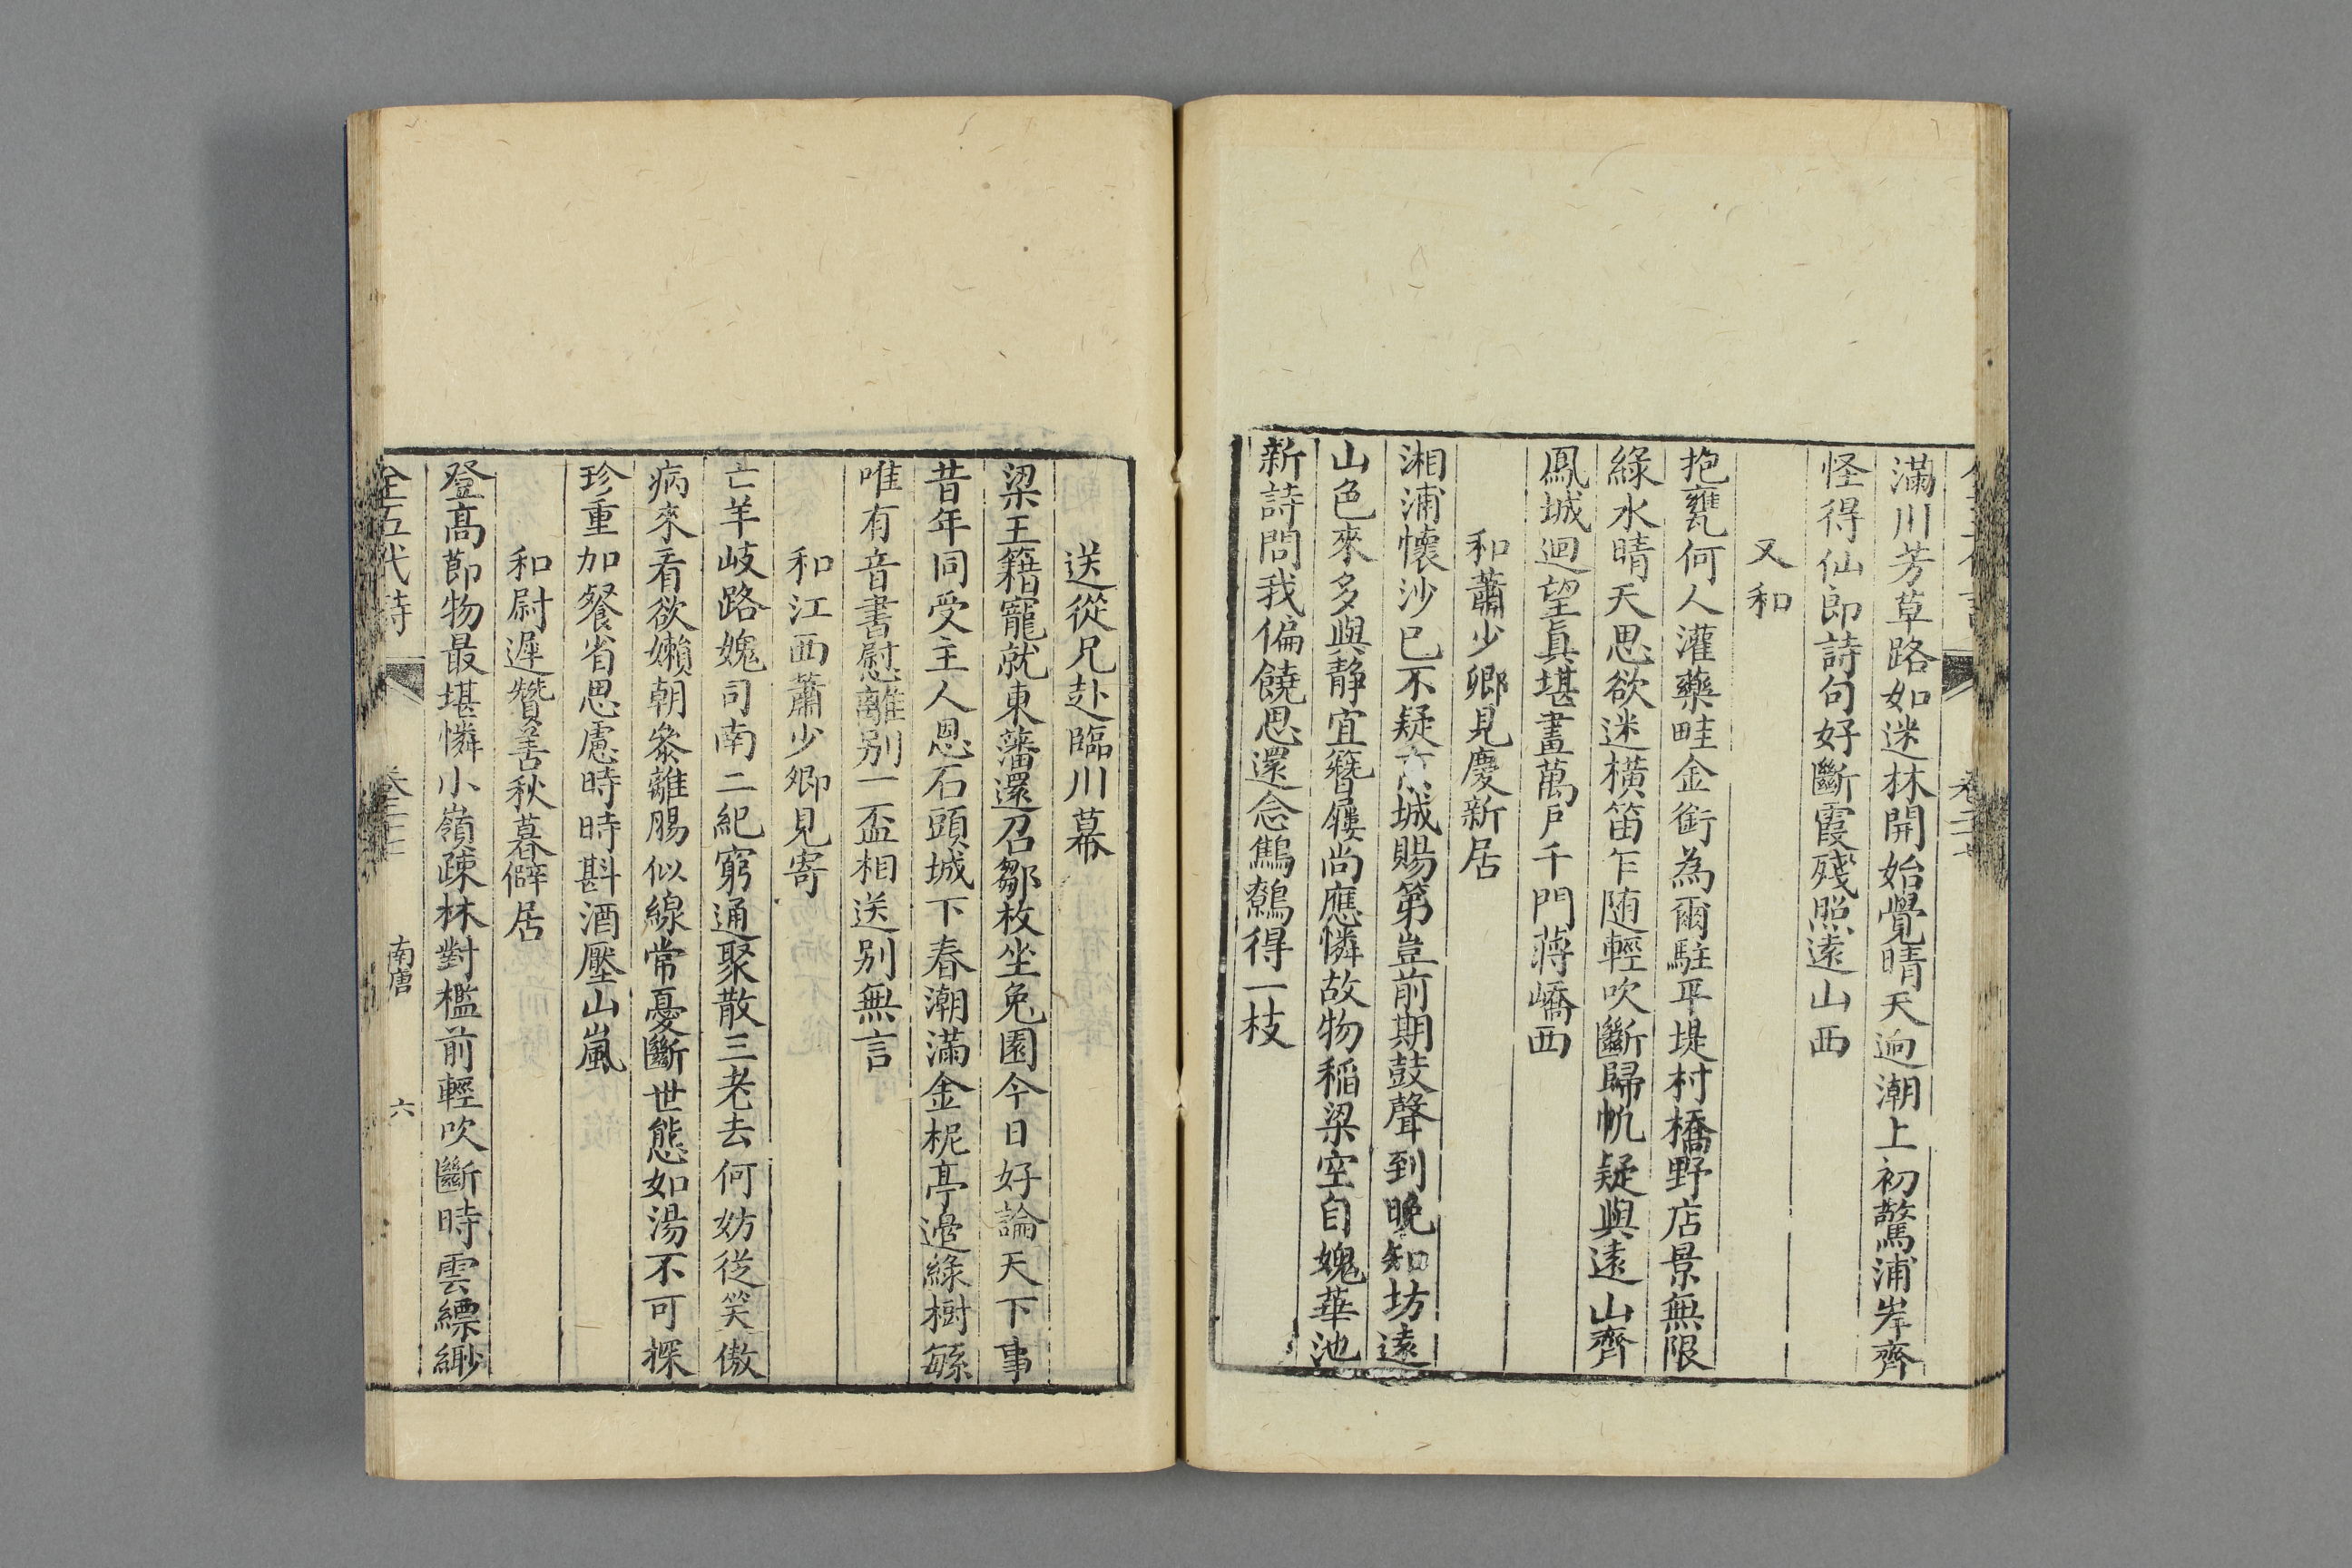 滿川芳草路如迷林開始覺晴天迥潮上初驚浦岸齊
怪得仙郎詩句好斷霞殘照遠山西
又和
抱甕何人灌藥畦金銜為爾駐平堤村橋野店景無限
綠水晴天思欲迷橫笛乍随輕吹斷歸帆疑與遠山齊
鳳城迴望眞堪畫萬戶千門蔣嶠西
和蕭少卿見慶新居
湘浦懷沙已不疑城賜第豈前期鼓聲到晚知坊遠
山色來多與静宜簪屨尚應憐故物稻粱空自媿華池
新詩問我偏饒思還念鷦鷯得一枝
送從兄赴臨川幕
梁王籍寵就東藩還召鄒枚坐兔園今日好論天下事
昔年同受主人恩石頭城下春潮滿金柅亭邊綠樹緐
唯有音書慰離别一盃相送别無言
和江西蕭少卿見寄
亡羊岐路媿司南二紀窮通聚散三老去何妨從笑傲
病來看欲嬾朝叅離腸似線常憂斷世態如湯不可探
珍重加餐省思慮時時斟酒壓山嵐
和尉遲贊善秋暮僻居
登高節物最堪憐小嶺疎林對檻前輕吹斷時雲縹緲
全五代詩 卷 南唐 六